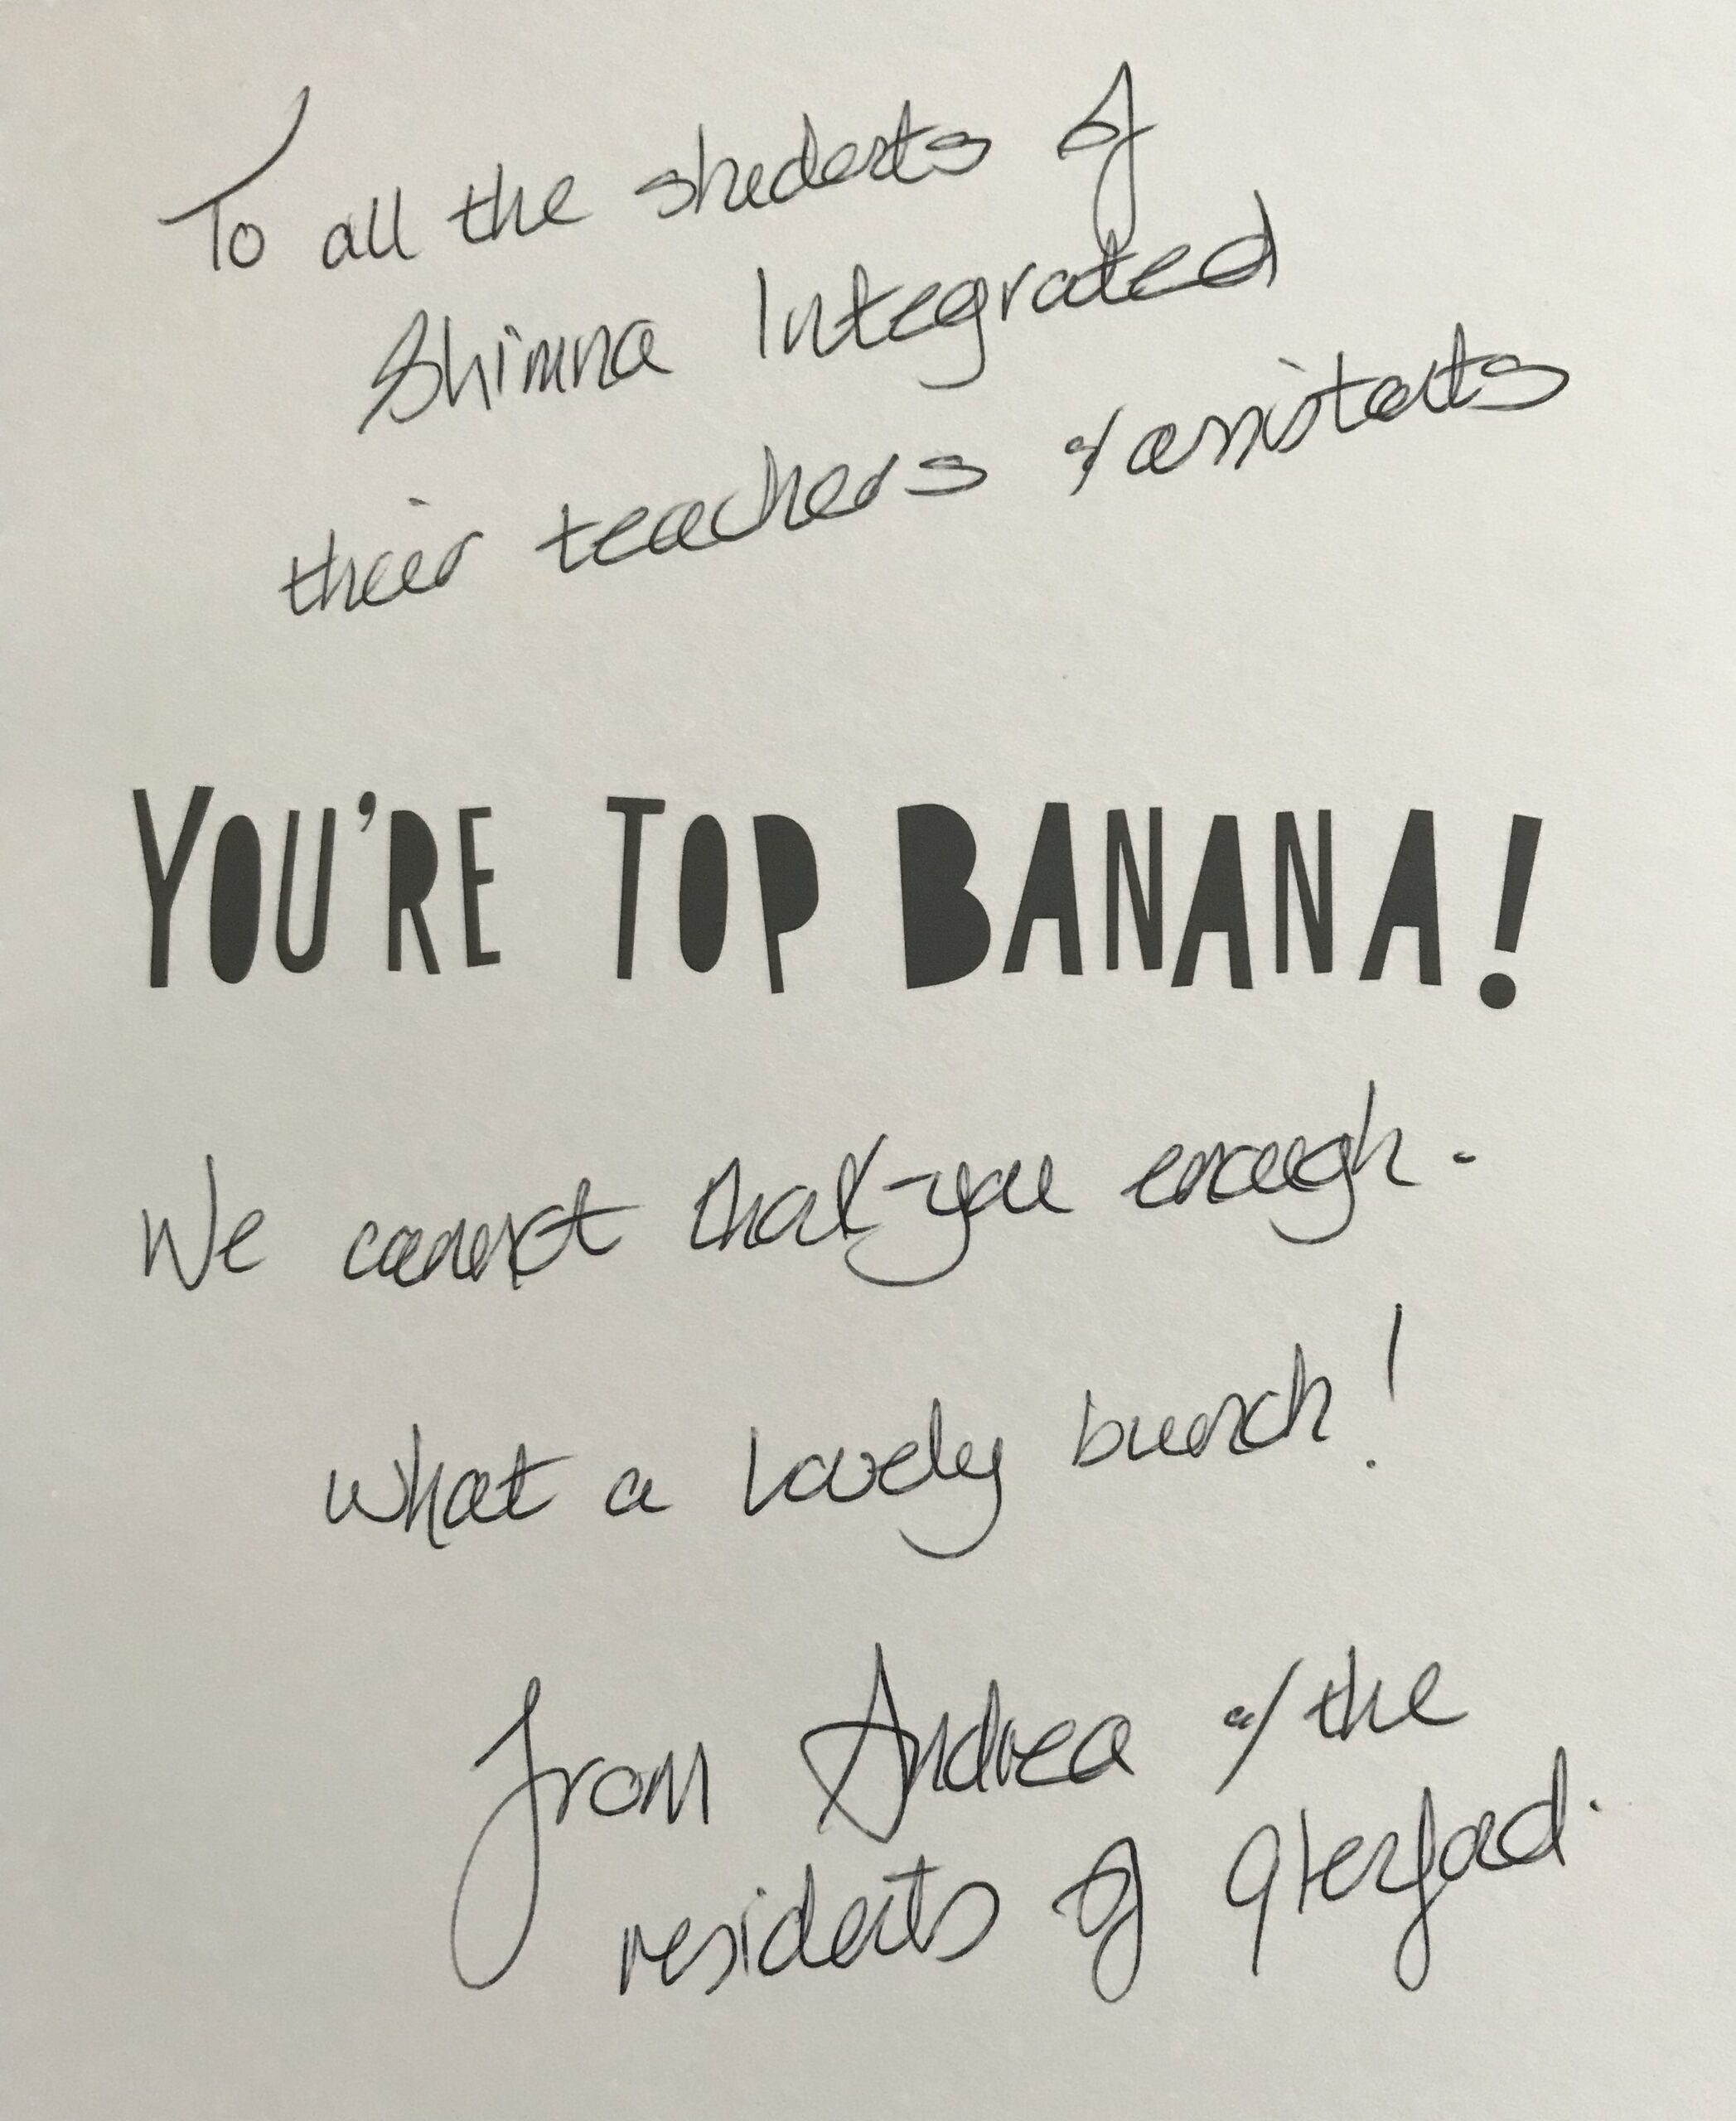 To all the students of
Shimna Integrated
their teachers & assistants
YOU'RE TOP BANANA!
We cannot thank-you enough -
what a lovely bunch!
from Andrea & the
residents of Glenfoad.